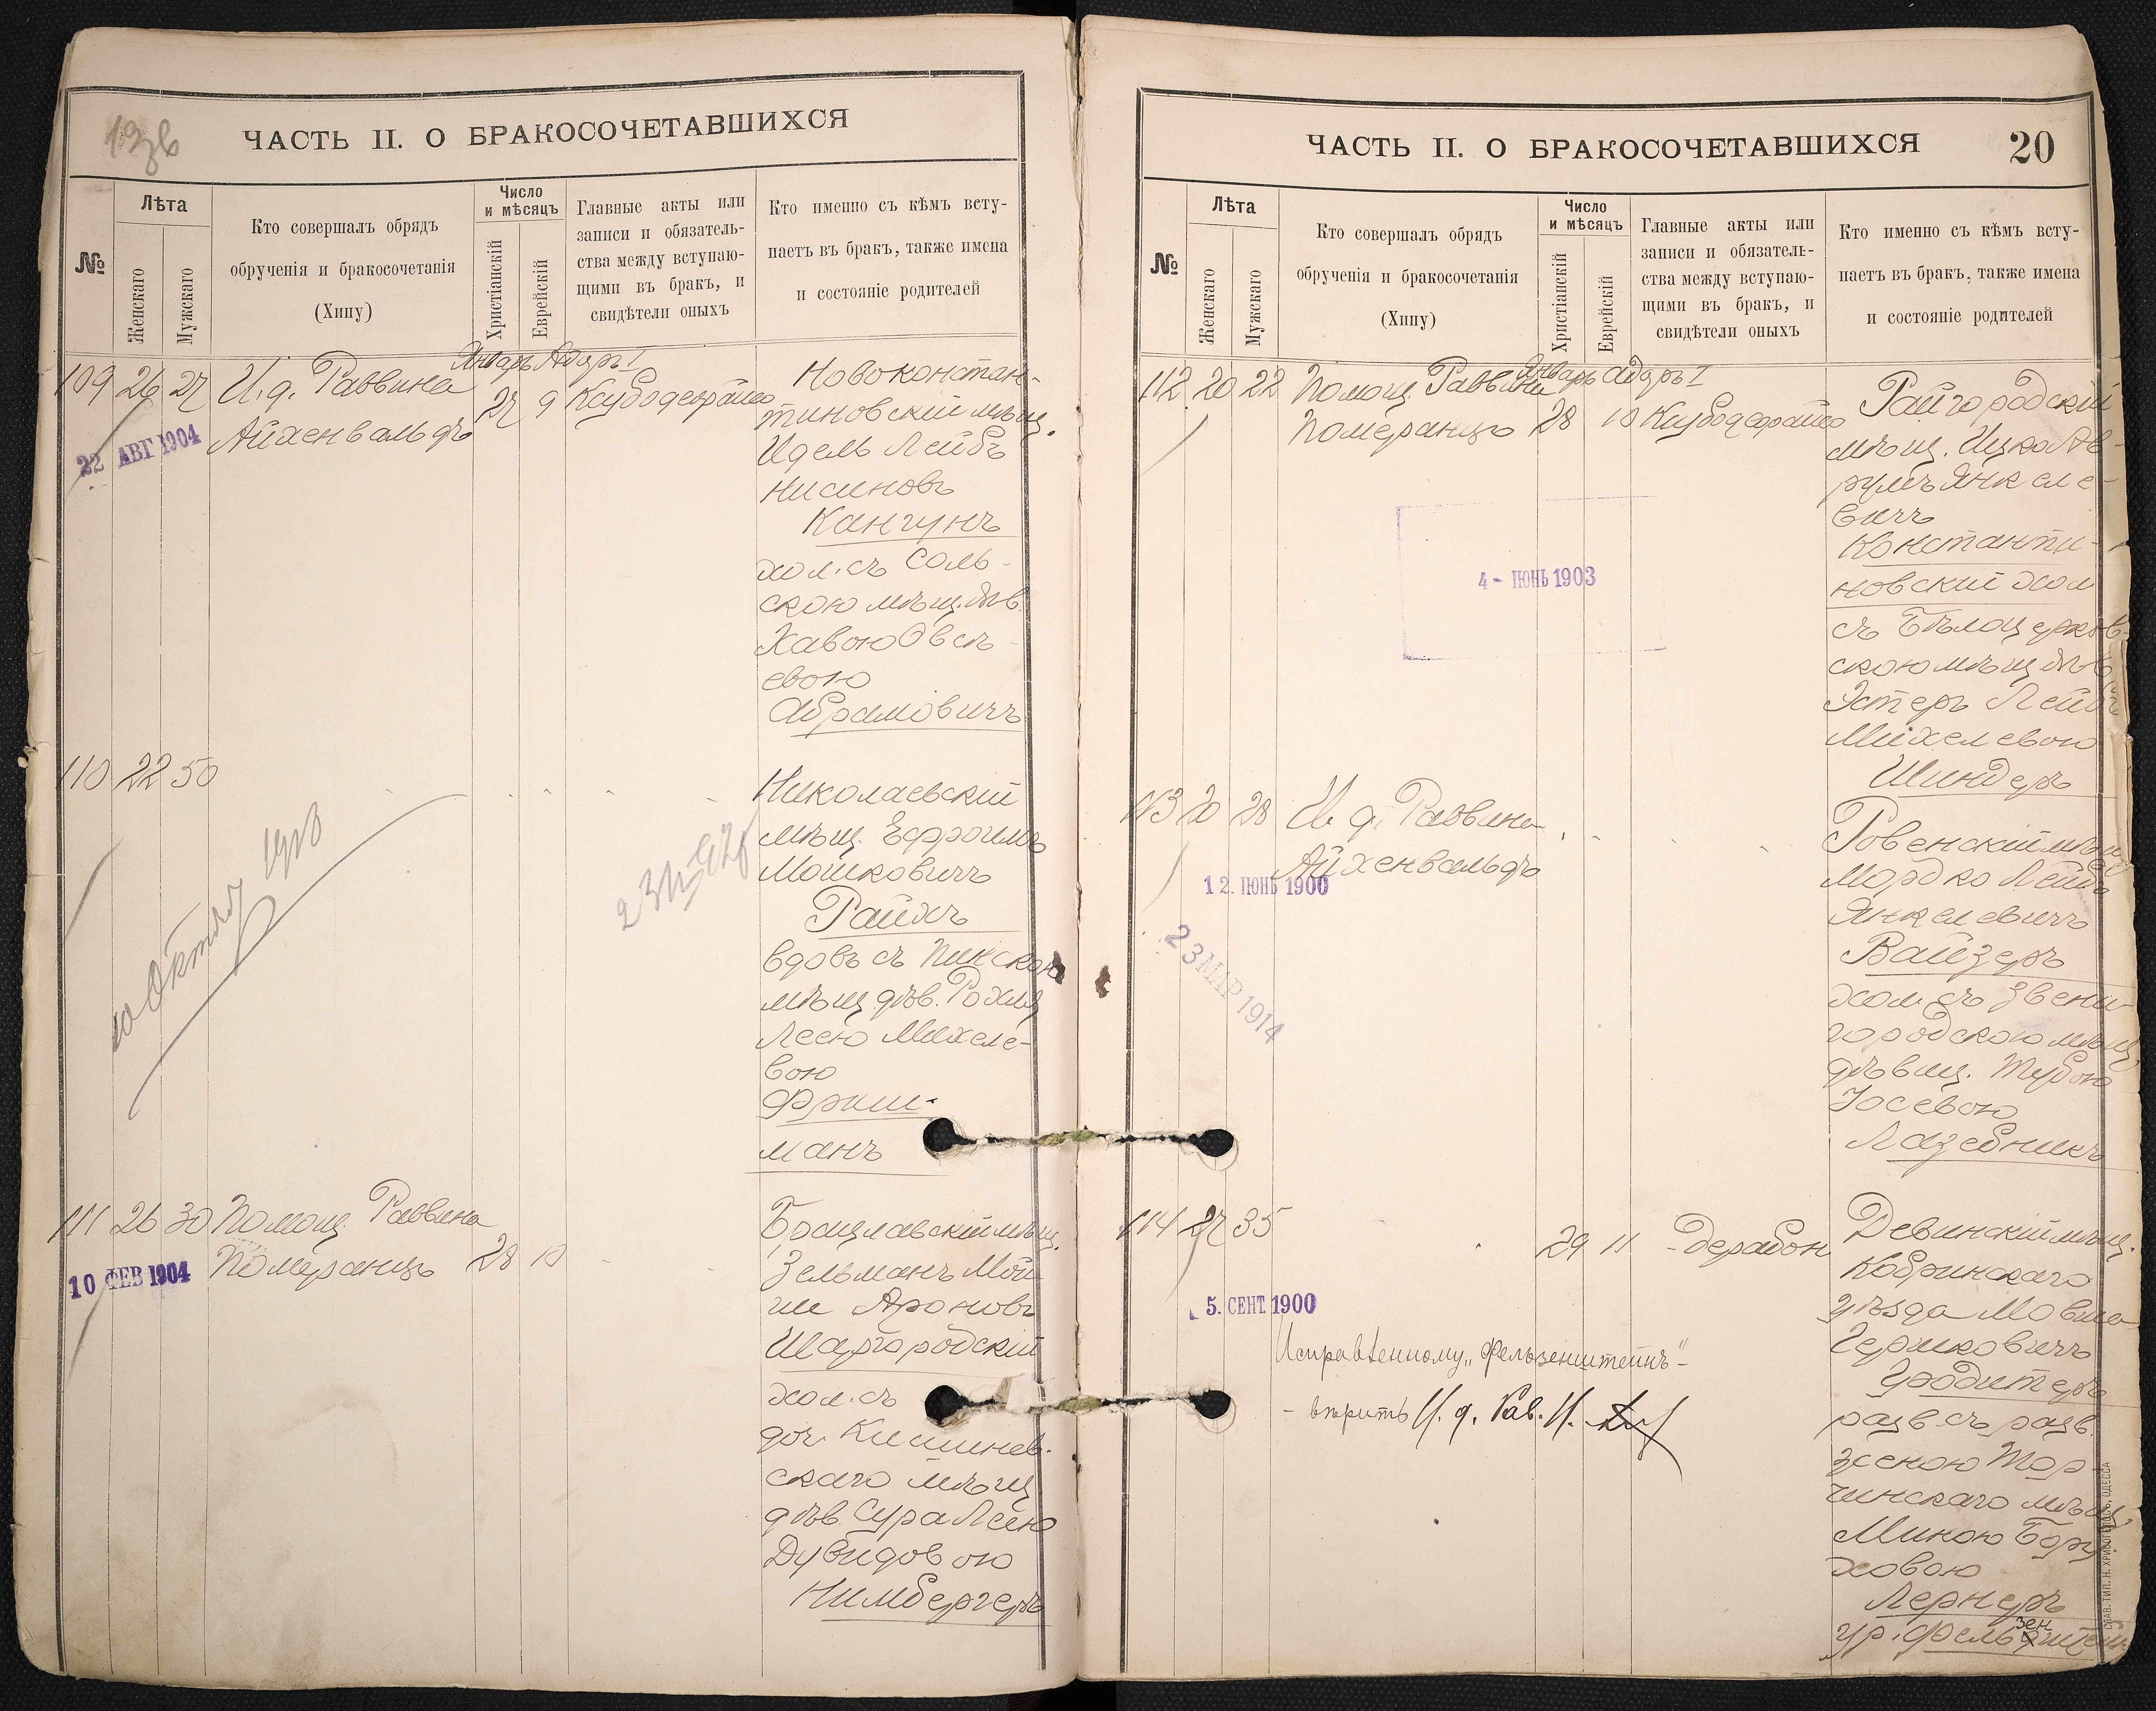 ЧАСТЬ II. О БРАКОСОЧЕТАВШИХСЯ
№
Лѣта
Женскаго
Мужскаго
Кто совершалъ обрядъ
обрученія и бракосочетанія
(Хипу)
Число
и мѣсяцъ
Христіанскій
Еврейскій
Главные акты или
записи и обязатель-
ства между вступаю-
щими въ бракъ, и
свидѣтели оныхъ
Кто именно съ кѣмъ всту-
паетъ въ бракъ, также имена
и состояніе родителей
Январь Адаръ I
109 26 27 И. д. Раввина 27 9
Айхенвальдъ
22 АВГ 1904
Новоконстан-
тиновскій мѣщ.
Идель Лейбъ
Нисиновъ
Кангунъ
хол. съ Соль-
скою мѣщ. дѣв.
Хавою Овсѣ-
евою
Абрамовичъ
110 22 50
10 Октяб 1918
Николаевскій
мѣщ. Ефроимъ
Мошковичъ
Райхъ
вдовъ съ Пинскою
мѣщ. дѣв. Рохлą
Леею Михеле-
вою
Фриш-
манъ
111 26 30 Помощ. Раввина
Померанцъ 28 10
10 ФЕВ 1904
Брацлавскій мѣщ.
Зельманъ Мой-
ше Ароновъ
Шаргородскій
хол. съ
доч. Кишинев-
скаго мѣщ
дѣв. Сура Леею
Дувидовою
Нимбергеръ
ЧАСТЬ II. О БРАКОСОЧЕТАВШИХСЯ 20
№
Лѣта
Женскаго
Мужскаго
Кто совершалъ обрядъ
обрученія и бракосочетанія
(Хипу)
Число
и мѣсяцъ
Христіанскій
Еврейскій
Главные акты или
записи и обязатель-
ства между вступаю-
щими въ бракъ, и
свидѣтели оныхъ
Кто именно съ кѣмъ всту-
паетъ въ бракъ, также имена
и состояніе родителей
Январь Адаръ I
112 20 22 Помощ. Раввина
Померанцъ 28 10
4 - ІЮНЬ 1903
Райгородскій
мѣщ. Ицко Ав-
румъ Янкеле-
вичъ
Константи-
новскій хол
съ Бѣлоцерков-
скою мѣщ. дѣв.
Эстеръ Лейбъ
Михелевою
Шиндеръ
113 20 28 И. д. Раввина
Айхенвальдъ
12. ІЮНЬ 1900
23 МАР 1914
Ровенскій мѣщ
Мордко Лейбъ
Янкелевичъ
Вайзеръ
хол. съ Звени-
городскою мѣщ
дѣвиц. Тубою
Іосевою
Лазебникъ
114 27 35 29 11
5. СЕНТ. 1900
Исправленному „Фельзенштейнъ"-
- вѣрить И. д. Рав. И.
Девинскій мѣщ.
Кобринскаго
уѣзда Мовша
Гершковичъ
Уродитеръ
разв. съ разв.
женою Тор-
чинскаго мѣщ,
Миною Бору-
ховою
Лернеръ
ур. Фельзенштейнъ
СЛАВ. ТИП. Н. ХРИСОГЕЛОСЪ, ОДЕССА